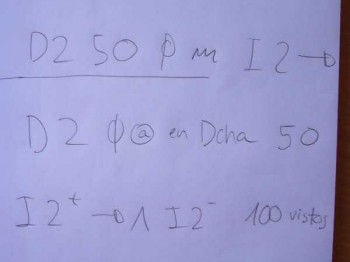 D2 50 φ m I2 →
D2 φ @ en Dcha 50
I2⁺ → 1 I2⁻ 100 vistos